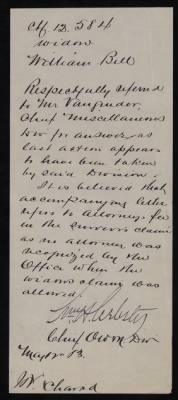 Ctf. 12.584
Widow
William Bell
Respectfully referred
to Mr.
Chief Miscellaneous
Div for answer, as
last action appears
to have been taken
by said Division.
It is believed that
accompanying letter
refers to attorney fee
in the survivors claim
as no attorney was
recognized by the
Office when the
widows claim was
allowed.
Webster
Chief O W & N Div
May
W.